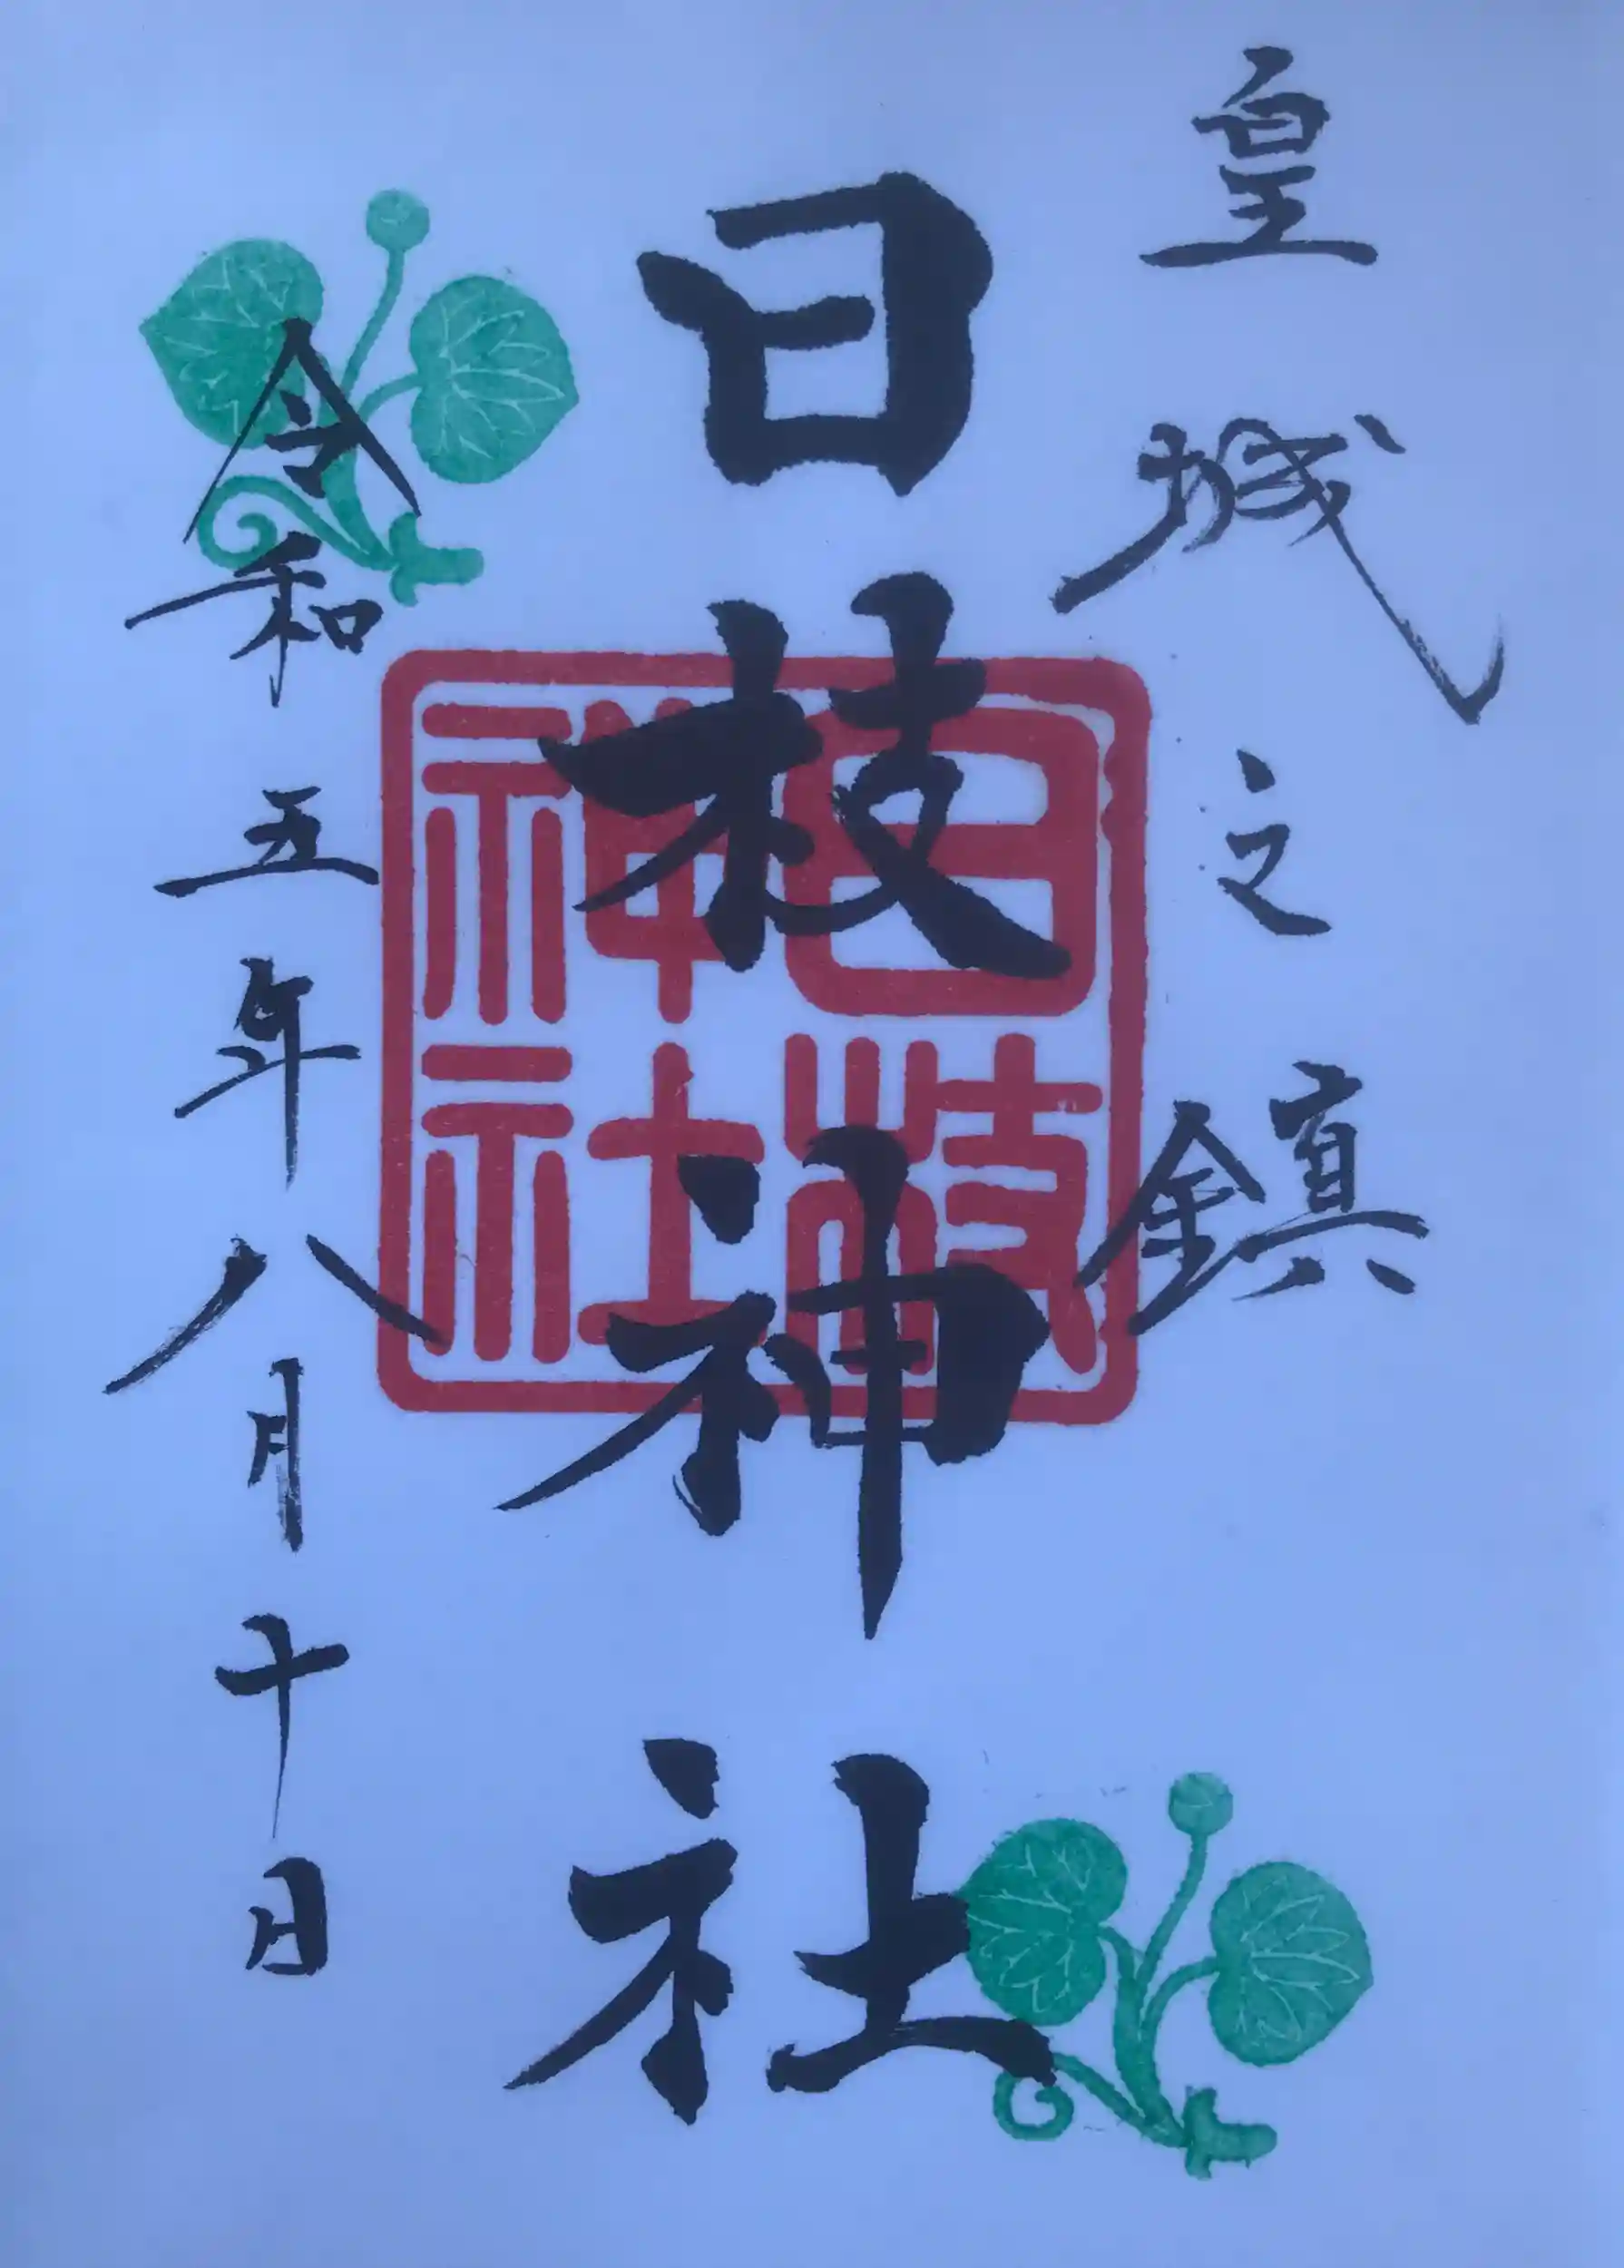 皇城之鎮
日枝神社
日枝神社
令和五年八月十日